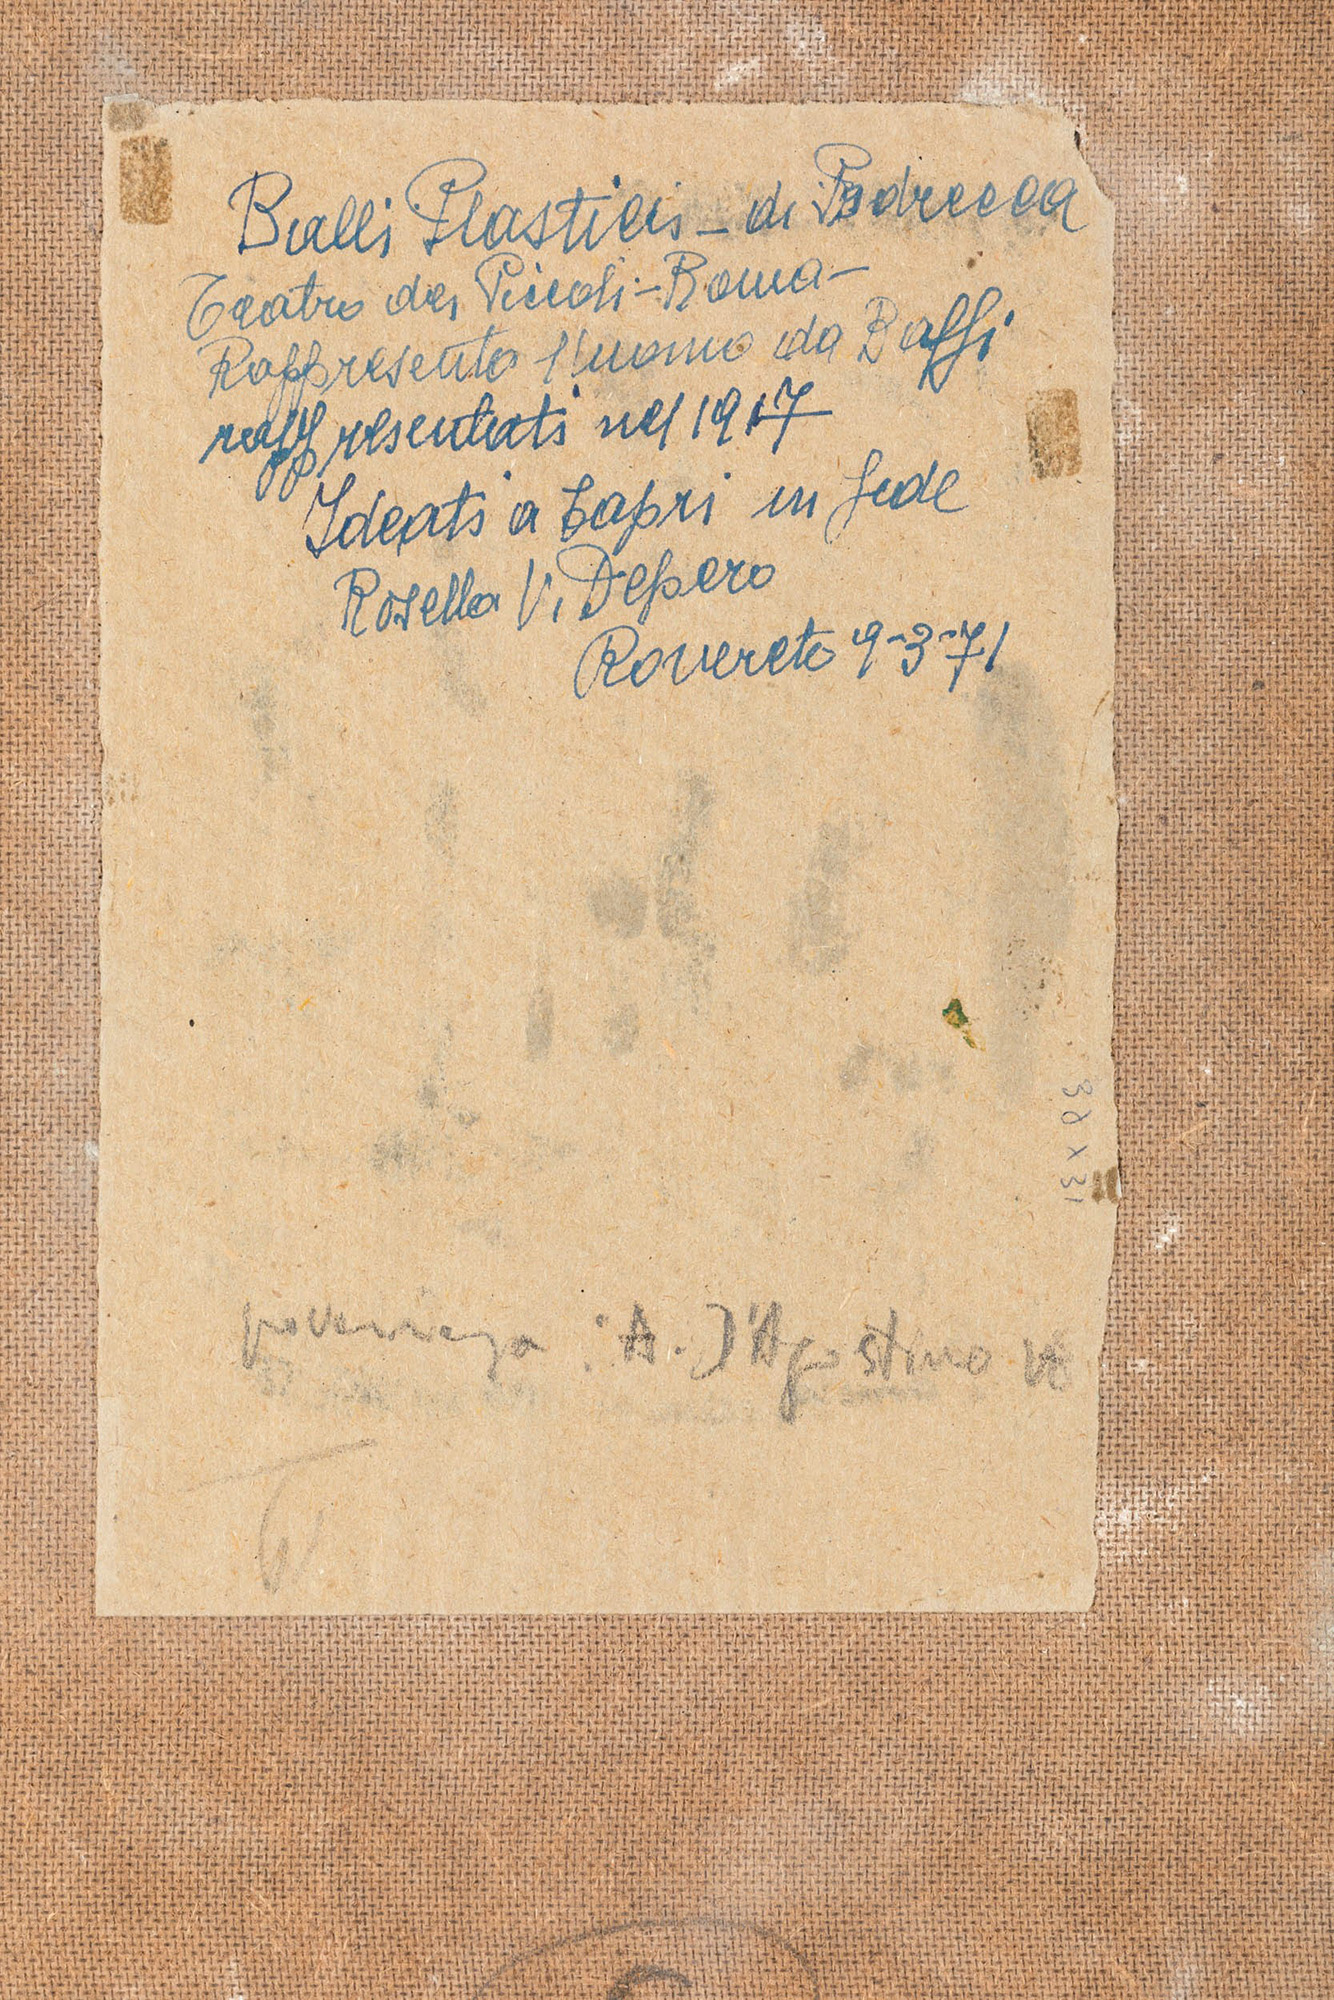 Balli Plastici – di Podrecca
Teatro dei Piccoli – Roma –
Rappresenta l'uomo da Baffi
rappresentati nel 1917
Ideati a Capri in fede
Rosella V. Depero
Rovereto 9-3-71
38 x 31
provenienza : A. D'Agostino